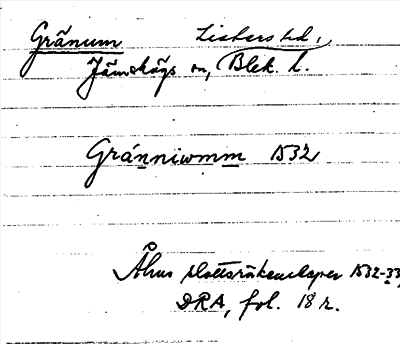 Gränum Listers hd.,
Jämshögs sn, Blek. l.
Gránniwmm 1532
Åhus slottsräkenskaper 1532-33,
DRA, fol. 18 r.